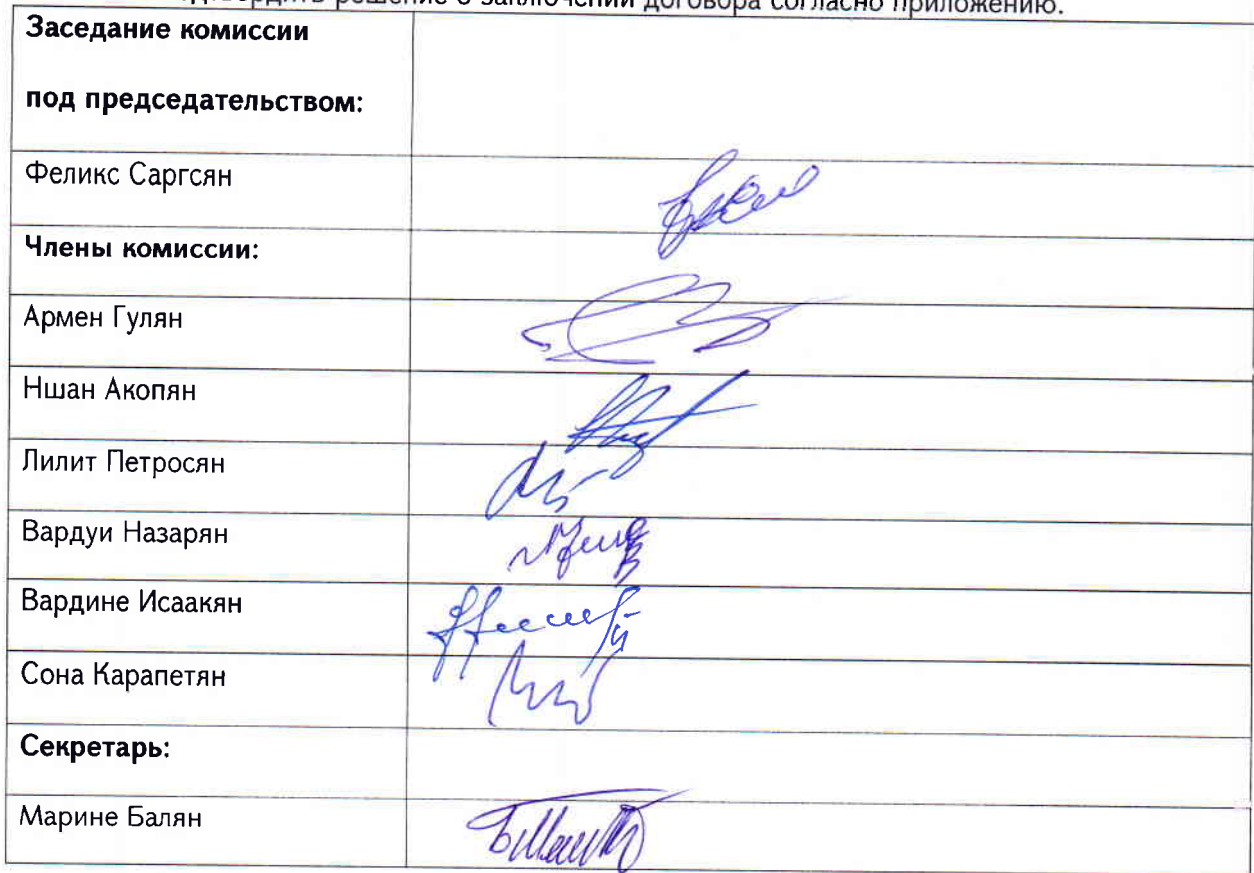 решение о заключении договора согласно приложению.
Заседание комиссии
под председательством:
Феликс Саргсян
Члены комиссии:
Армен Гулян
Ншан Акопян
Лилит Петросян
Вардуи Назарян
Вардине Исаакян
Сона Карапетян
Секретарь:
Марине Балян